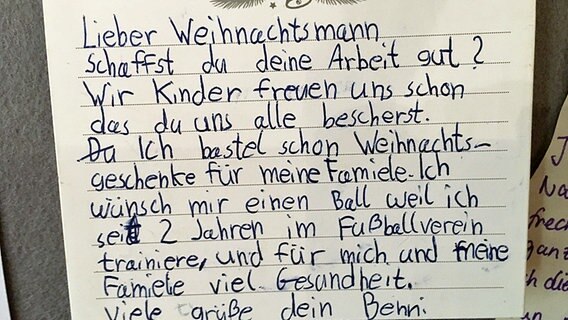 Lieber Weihnachtsmann
Schaffst du deine Arbeit gut?
Wir Kinder freuen uns schon
das du uns alle bescherst.
Du Ich bastel schon Weihnachts-
geschenke für meine Famiele. Ich
wünsch mir einen Ball weil ich
seit 2 Jahren im Fußballverein
trainiere, und für mich und meine
Famiele viel Gesundheit.
Viele grüße dein Benni.